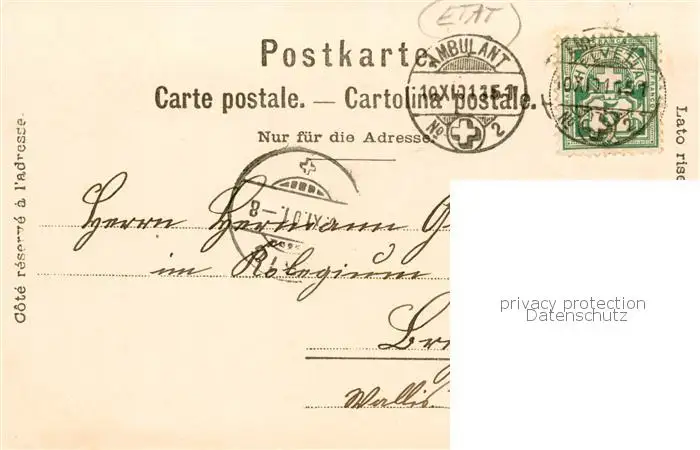 ETAT
Postkarte.
Carte postale. — Cartolina postale.
Nur für die Adresse.
AMBULANT
10 XI 01
No 2
HELVETIA
AMBULANT
10 XI 01
No 2
Côté réservé à l'adresse.
Lato rise
XI.01.-8
Herrn Hermann G
im Kolegium
Bri
Wallis.
privacy protection
Datenschutz